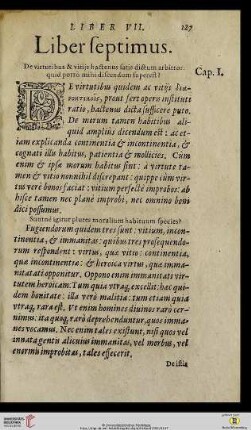 LIBER VII. 187
Liber septimus.
De virtutibus & vitijs hactenus satis dictum arbitror:
quid porro mihi dicendum superest?
Cap. I.
DE virtutibus quidem ac vitijs
contrarijs, prout fert opera instituti
ratio, hactenus dicta sufficere puto.
De morum tamen habitibus ali-
quid amplius dicendum est: ac et-
iam explicanda continentia & incontinentia, &
cognati illis habitus, patientia & mollicies. Cum
enim & ipsi morum habitus sint: a virtute ta-
men & vitio nonnihil discrepant: quippe cùm vir-
tus verè bonos faciat: vitium perfectè improbos: ab
hisce tamen nec planè improbi, nec omnino boni
dici possumus.
Suntne igitur plures moralium habituum species?
Fugiendorum quidem tres sunt: vitium, incon-
tinentia, & immanitas: quibus tres prosequendo-
rum respondent: virtus, quæ vitio: continentia,
quæ incontinentiæ: & heroica virtus, quæ imma-
nitati opponitur. Oppono enim immanitati vir-
tutem heroicam: Tum quia vtraq, excellit: hæc qui-
dem bonitate: illa verò malitia: tum etiam quia
vtraq, rara est. Vt enim hominem diuinos rarò cer-
nimus: ita quoq, rarò deprehenduntur, quos imma-
nes vocamus. Nec enim tales existunt, nisi quos vel
innata gentis alicuius immanitas, vel morbus, vel
enormis improbitas, tales effecerit.
De istis